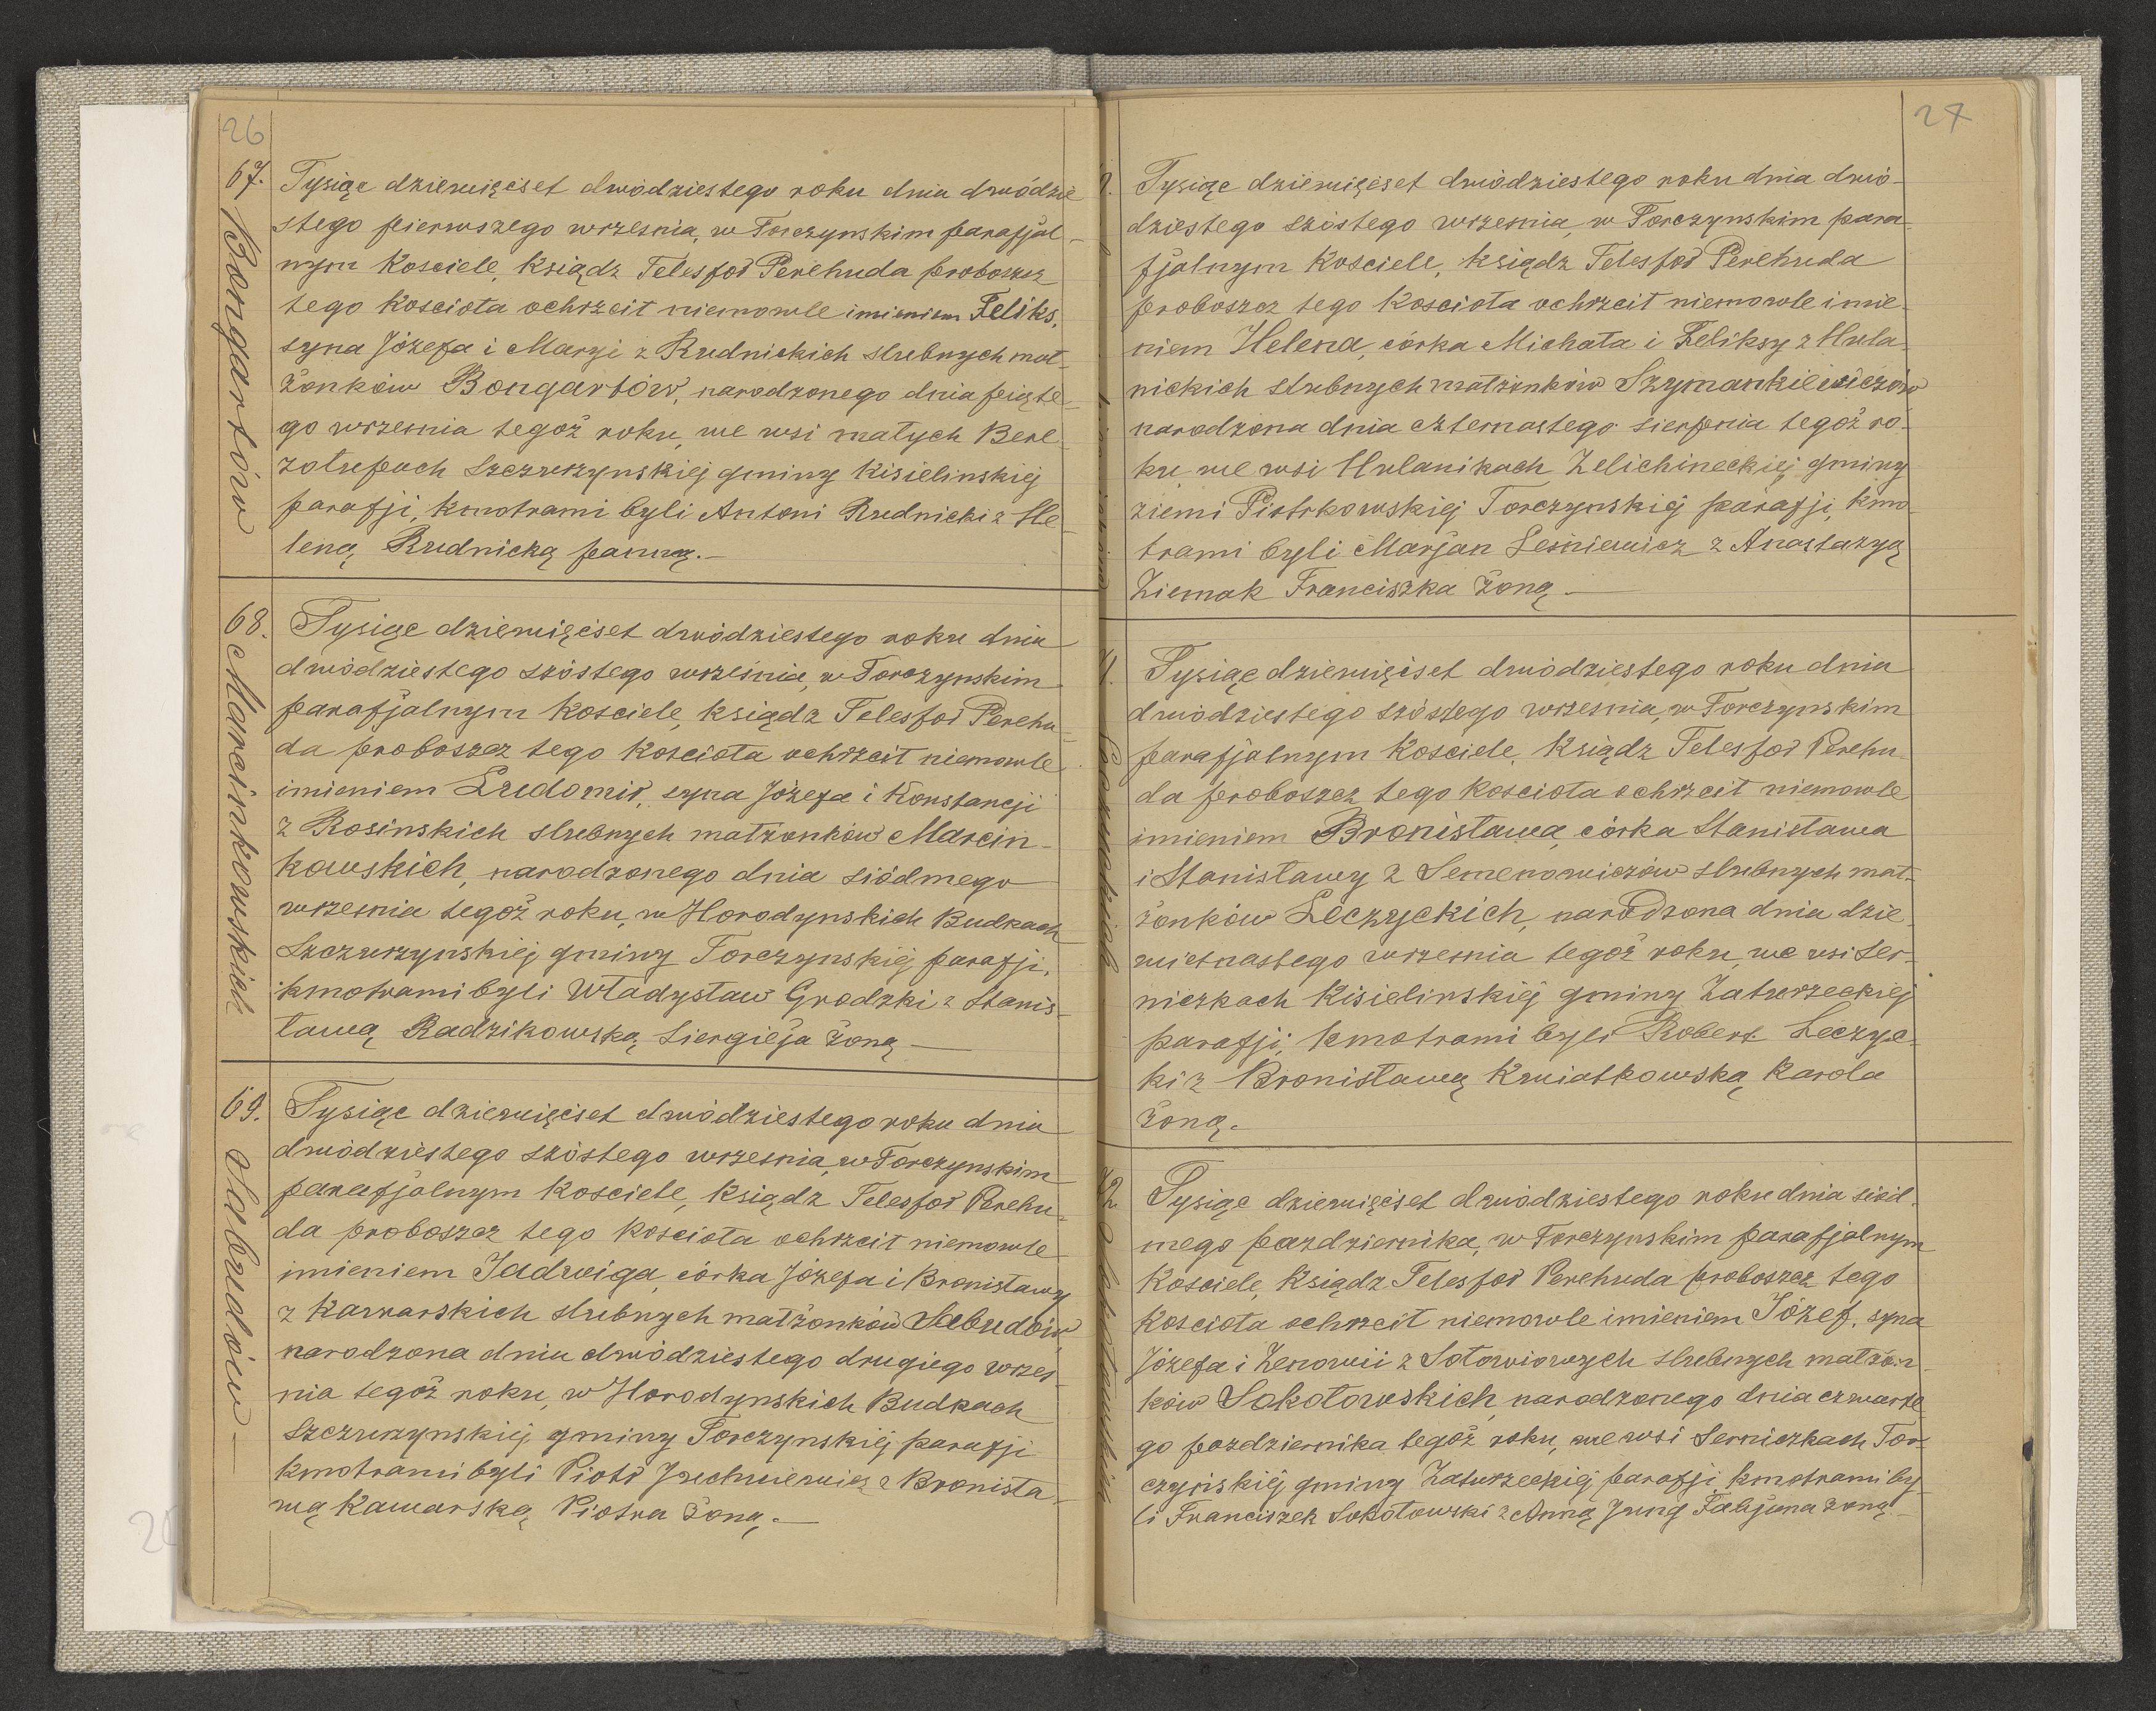 26
67. Bongartów
Tysiąc dziewięćset dwódziestego roku dnia dwódzie
stego pierwszego wrzesnia, w Torczynskim parafjal-
nym Kosciele, Ksiądz Telesfor Perehuda proboszcz
tego Koscioła ochrzcił niemowle imieniem Feliks,
syna Józefa i Maryi z Rudnickich slubnych mał-
żonków Bongartów, narodzonego dnia piąte-
go wrzesnia tegoż roku, we wsi małych Bere
zołupach Szczurzynskiej gminy Kisielinskiej
parafji, kmotrami byli Antoni Rudnicki z He
leną Rudnicką panną.—
68. Marcinkowskich
Tysiąc dziewięćset dwódziestego roku dnia
dwódziestego szóstego września, w Torczynskim
parafjalnym Kosciele, Ksiądz Telesfor Perehu-
da proboszcz tego Koscioła ochrzcił niemowle
imieniem Ludomir, syna Józefa i Konstancji
z Rosinskich slubnych małżonków Marcin-
kowskich, narodzonego dnia siódmego
wrzesnia tegoż roku, w Horodynskich Budkach
Szczurzynskiej gminy Torczynskiej parafji,
kmotrami byli Władysław Grodzki z Stanis-
ławą Radzikowską Siergieja żoną —
69. Sabudów —
Tysiąc dziewięćset dwódziestego roku dnia
dwódziestego szóstego wrzesnia, w Torczynskim
parafjalnym Kosciele, Ksiądz Telesfor Perehu-
da proboszcz tego Koscioła ochrzcił niemowle
imieniem Jadwiga, córka Józefa i Bronisławy
z Karwarskich slubnych małżonków Sabudów,
narodzona dnia dwódziestego drugiego wrzes-
nia tegoż roku, w Horodynskich Budkach
Szczurzynskiej gminy Torczynskiej parafji
kmotrami byli Piotr z Bronisła-
wą Kawarską Piotra żoną.—
27
Tysiąc dziewięćset dwódziestego roku dnia dwó-
dziestego szóstego wrzesnia, w Torczynskim para-
fjalnym Kosciele, Ksiądz Telesfor Perehuda
proboszcz tego Koscioła ochrzcił niemowle imie-
niem Helena, córka Michała i Feliksy z Hula-
nickich slubnych małżonków Szymankiewiczów
narodzona dnia czternastego sierpnia tegoż ro-
ku, we wsi Hulanikach Zelichineckiej gminy
ziemi Piotrkowskiej Torczynskiej parafji, kmo-
trami byli Marjan Leśniewicz z Anastazyą
Ziemak Franciszka żoną —
Tysiąc dziewięćset dwódziestego roku dnia
dwódziestego szóstego wrzesnia, w Torczynskim
parafjalnym Kosciele, Ksiądz Telesfor Perehu-
da proboszcz tego Koscioła ochrzcił niemowle
imieniem Bronisława, córka Stanisława
i Stanisławy z Semenowiczów slubnych mał-
żonków Łeczyckich, narodzona dnia dzie-
wietnastego wrzesnia tegoż roku, we wsi Ser-
niczkach Kisielinskiej gminy Zaturzeckiej
parafji, kmotrami byli Robert Łeczyc-
ki z Bronisławą Kwiatkowską Karola
żoną.
Tysiąc dziewięćset dwódziestego roku dnia siód-
mego pazdziernika, w Torczynskim parafjalnym
Kosciele, Ksiądz Telesfor Perehuda proboszcz tego
Kosciola ochrzcił niemowle imieniem Józef, syna
Józefa i Zenowii z Sołowiowych slubnych małżon-
ków Sokołowskich, narodzonego dnia czwarte-
go pazdziernika tegoż roku, we wsi Serniczkach Tor-
czyńskiej gminy Zaturzeckiej parafji, kmotrami by-
li Franciszek Sokołowski z Anną Jung Fabjana żoną.—